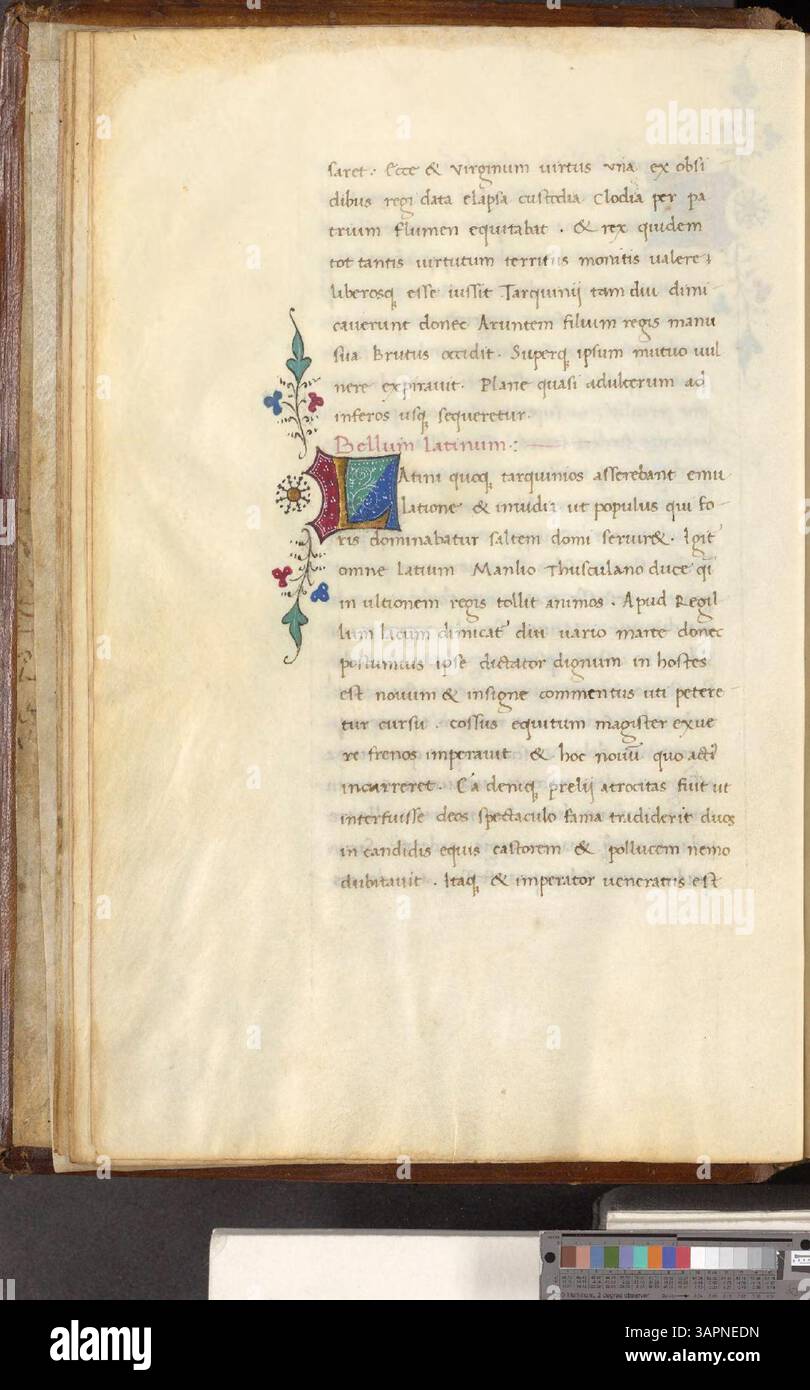 saret. Ecce & virginum uirtus una ex obsi
dibus regi data elapsa custodia Clodia per pa
trium flumen equitabat. & rex quidem
tot tantis uirtutum territus monitis ualere
liberosq; esse iussit Tarquinij tam diu dimi
cauerunt donec Aruntem filium regis manu
sua Brutus occidit. Superq; ipsum mutuo uul
nere expirauit. Plane quasi adulterum ad
inferos usq; sequeretur.
Bellum latinum:
LAtini quoq; tarquinios asserebant emu
latione & inuidia ut populus qui fo
ris dominabatur saltem domi seruir&. Igit'
omne latium Manlio Thusculano duce q̃i
in ultionem regis tollit animos. Apud Regil
lum lacum dimicat' diu uario marte donec
postumius ipse dictator dignum in hostes
est nouum & insigne commentus uti petere
tur cursu. cossus equitum magister exue
re frenos imperauit & hoc nouū quo acti'
incurreret. Ea deniq; prelij atrocitas fuit ut
interfuisse deos spectaculo fama tradiderit duos
in candidis equis castorem & pollucem nemo
dubitauit. Itaq; & imperator ueneratus est
alamy
Image ID: 3APNEDN
www.alamy.com